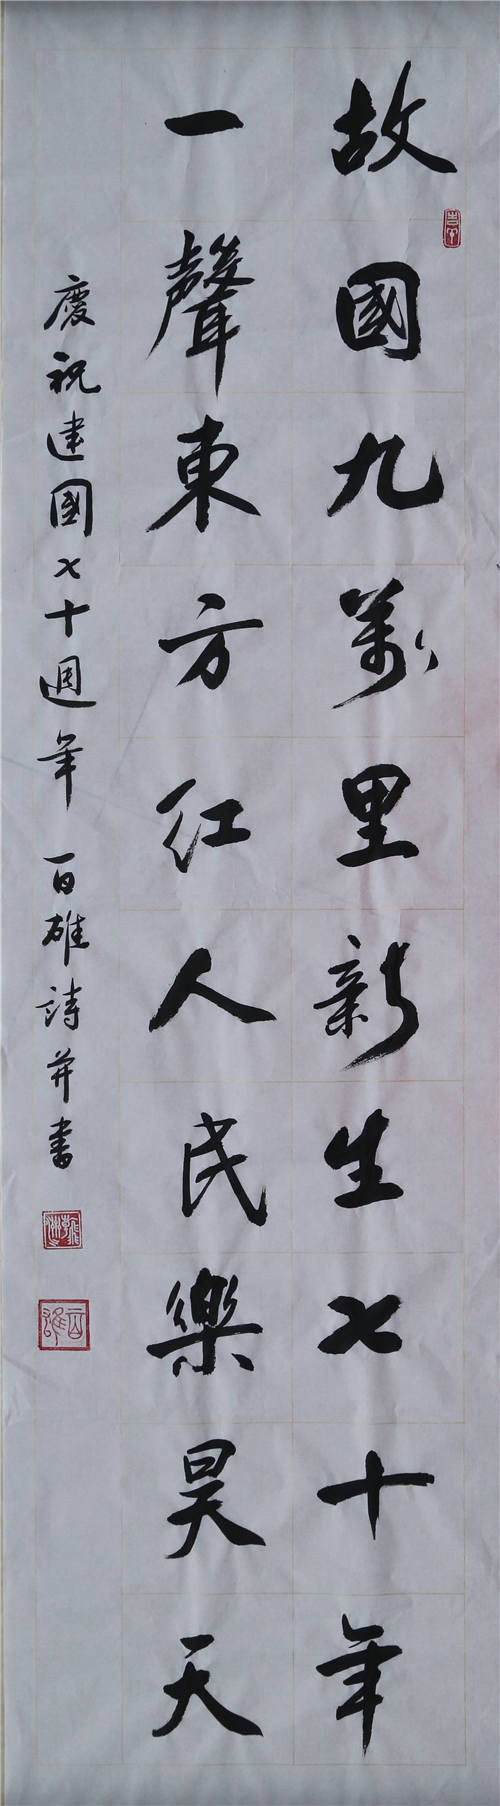 故國九萬里新生七十年
一聲東方红人民樂昊天
慶祝建國七十週年 百雄詩并書